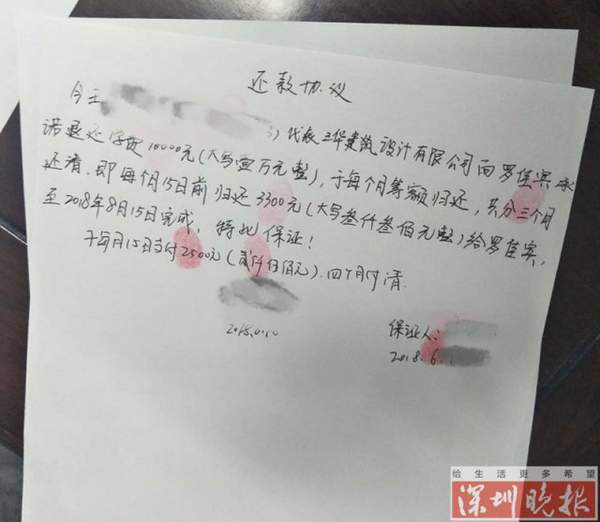 还款协议
今 代表三华建筑设计有限公司向罗佳宾承
诺退还学费10000元(大写壹万元整),于每个月等额归还,共分三个月
还清,即每个月15日前归还3300元(大写叁仟叁佰元整)给罗佳宾,
至2018年8月15日完成,特此保证!
于每月15日支付2500元(贰仟伍佰元).四个月付清.
保证人:
2018.6.
给生活更多希望
深圳晚报